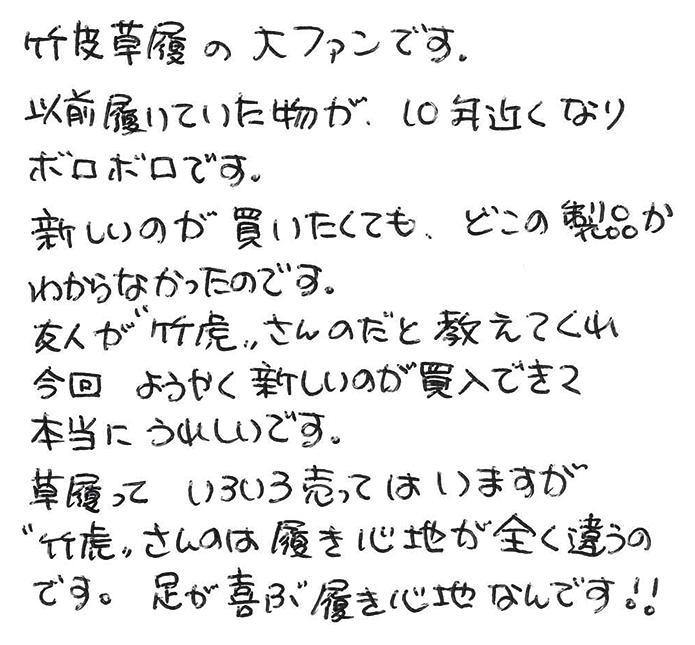 竹皮草履の大ファンです。
以前履いていた物が、10年近くなり
ボロボロです。
新しいのが買いたくても、どこの製品か
わからなかったのです。
友人が〝竹虎〟さんのだと教えてくれ
今回 ようやく新しいのが買入できて
本当にうれしいです。
草履って いろいろ売ってはいますが
〝竹虎〟さんのは履き心地が全く違うの
です。足が喜ぶ履き心地なんです!!